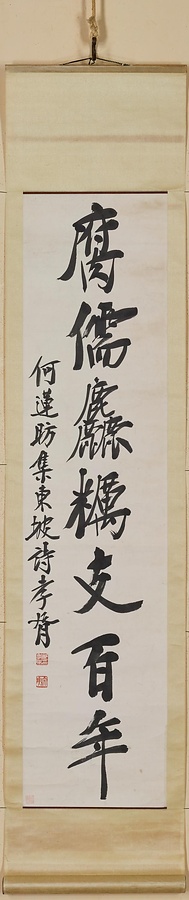 腐儒麤糲支百年
何蓮昉集東坡詩孝胥